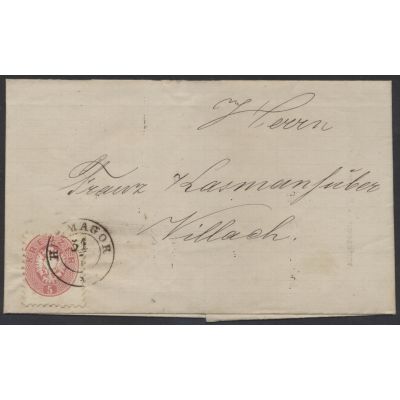 Herrn
Franz Kasmanhuber
Villach.
H MAGOR
31
5